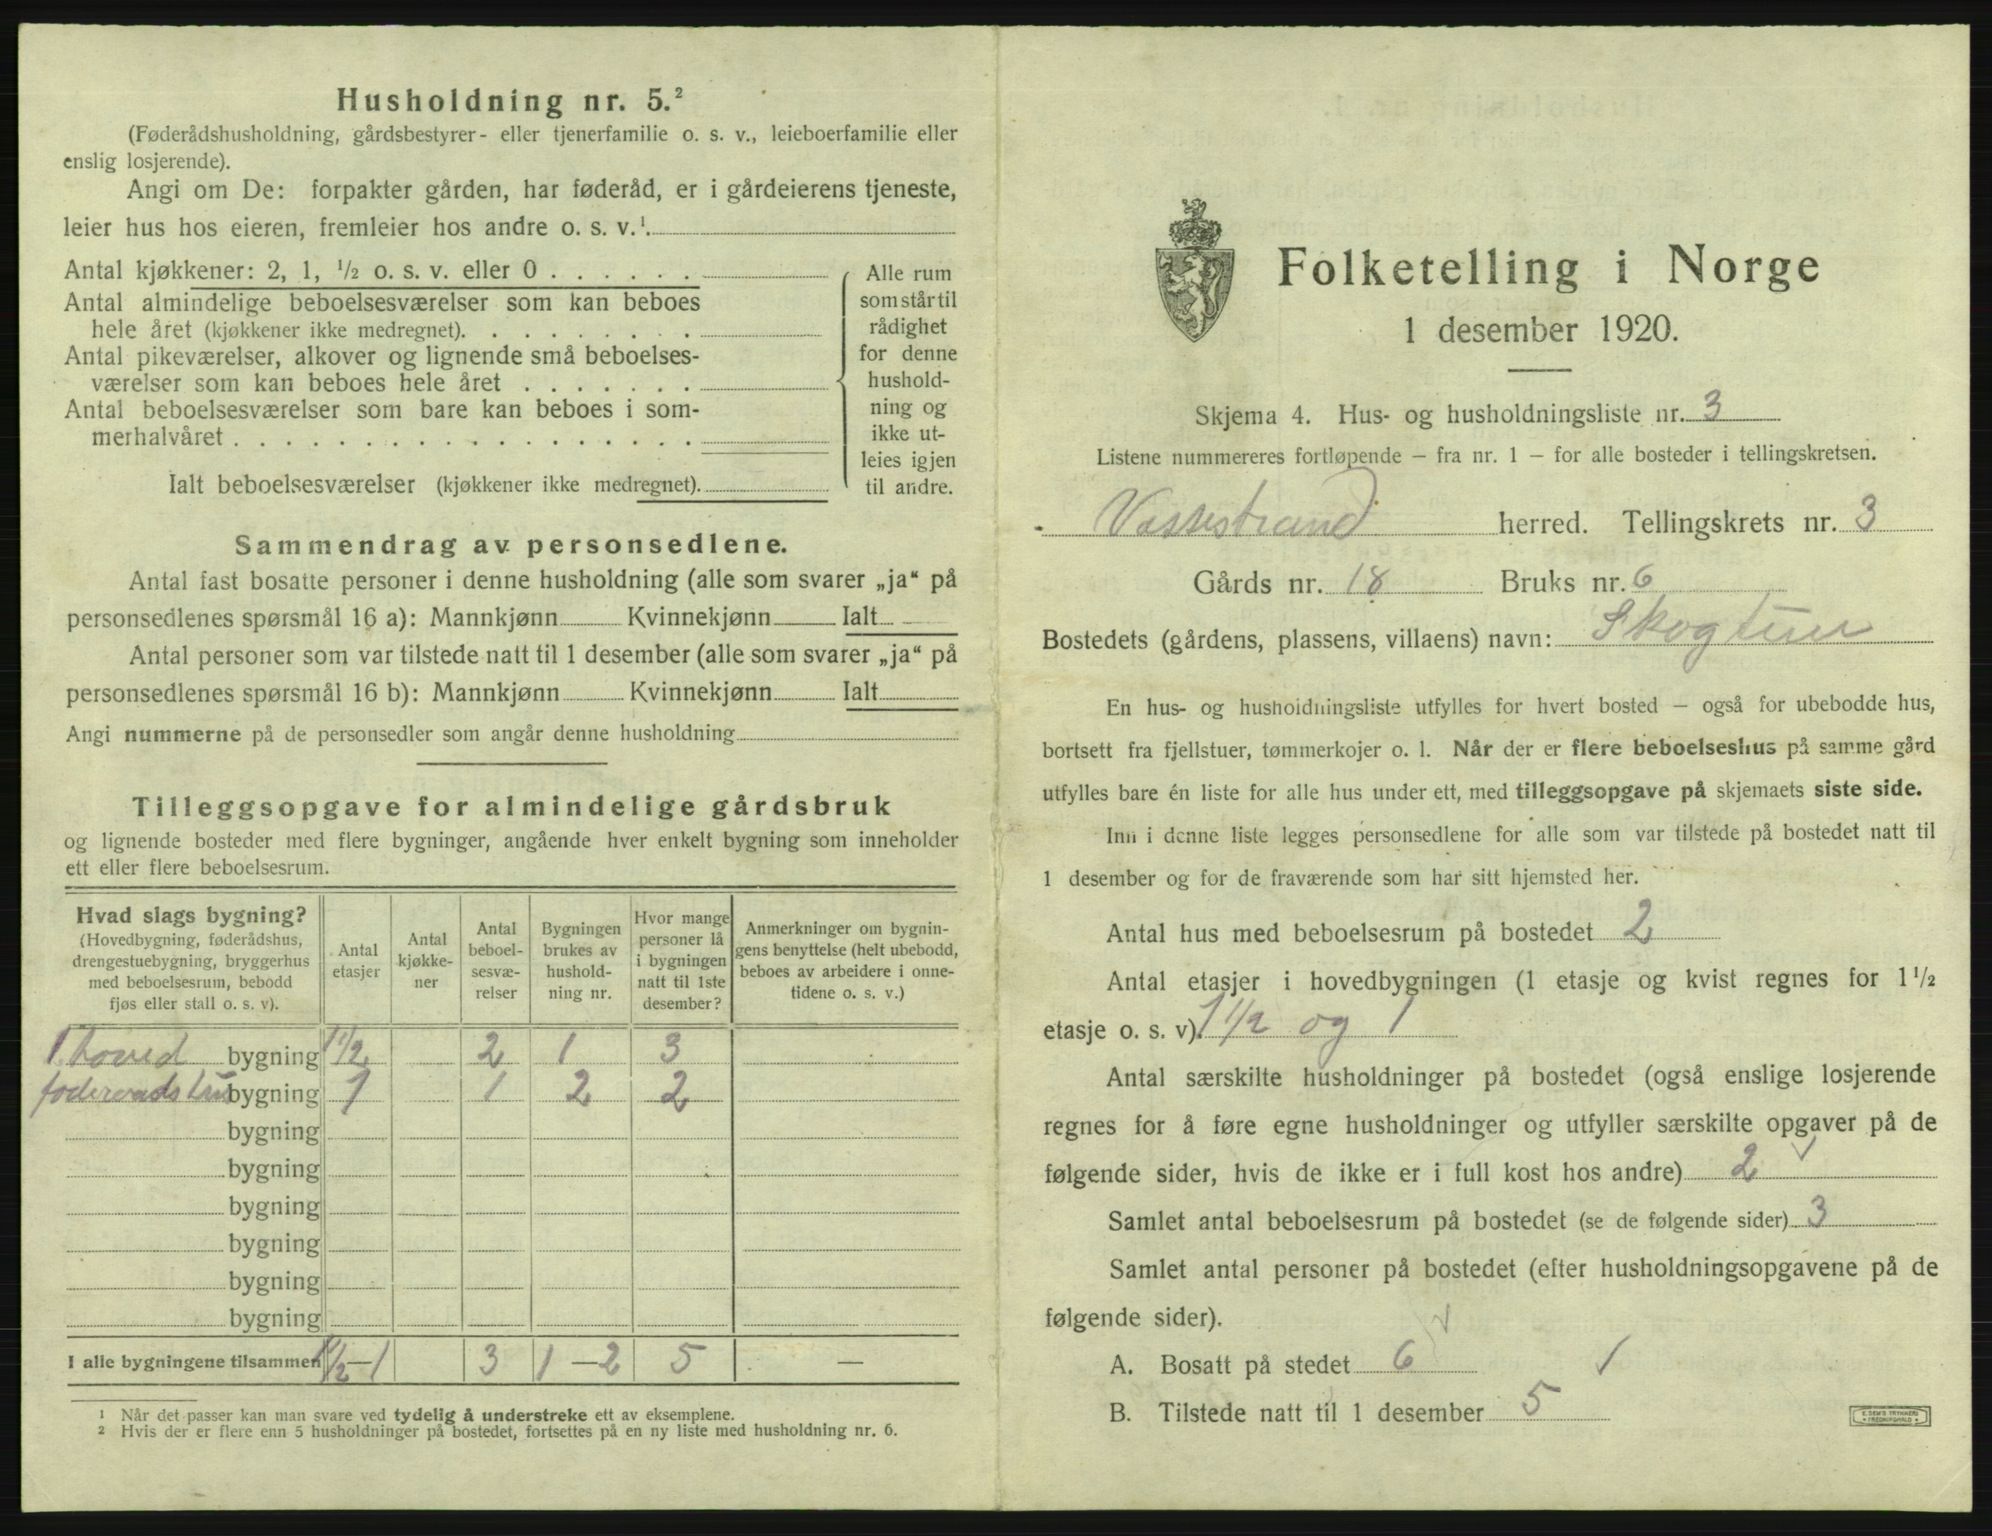 Husholdning nr. 5.²
(Føderådshusholdning, gårdsbestyrer- eller tjenerfamilie o. s. v., leieboerfamilie eller
enslig losjerende).
Angi om De: forpakter gården, har føderåd, er i gårdeierens tjeneste,
leier hus hos eieren, fremleier hos andre o. s. v.¹
Antal kjøkkener: 2, 1, ½ o. s. v. eller 0 . . . . . .
Antal almindelige beboelsesværelser som kan beboes
hele året (kjøkkener ikke medregnet). . . . . . . . .
Antal pikeværelser, alkover og lignende små beboelses-
værelser som kan beboes hele året . . . . . . .
Antal beboelsesværelser som bare kan beboes i som-
merhalvåret . . . . . . . . . . . . . . . . . .
Ialt beboelsesværelser (kjøkkener ikke medregnet).
Alle rum
som står til
rådighet
for denne
hushold-
ning og
ikke ut-
leies igjen
til andre.
Sammendrag av personsedlene.
Antal fast bosatte personer i denne husholdning (alle som svarer „ja“ på
personsedlenes spørsmål 16 a): Mannkjønn Kvinnekjønn Ialt
Antal personer som var tilstede natt til 1 desember (alle som svarer „ja“ på
personsedlenes spørsmål 16 b): Mannkjønn Kvinnekjønn Ialt
Angi nummerne på de personsedler som angår denne husholdning
Tilleggsopgave for almindelige gårdsbruk
og lignende bosteder med flere bygninger, angående hver enkelt bygning som inneholder
ett eller flere beboelsesrum.
Hvad slags bygning?
(Hovedbygning, føderådshus,
drengestuebygning, bryggerhus
med beboelsesrum, bebodd
fjøs eller stall o. s. v).
Antal
etasjer
Antal
kjøkke-
ner
Antal
beboel-
sesvæ-
relser
Bygningen
brukes av
hushold-
ning nr.
Hvor mange
personer lå
i bygningen
natt til 1ste
desember?
Anmerkninger om bygnin-
gens benyttelse (helt ubebodd,
beboes av arbeidere i onne-
tidene o. s. v.)
1 hoved bygning 1½ 2 1 3
føderaadshus bygning 1 1 2 2
bygning
bygning
bygning
bygning
bygning
bygning
I alle bygningene tilsammen 1½—1 3 1—2 5 —
¹ Når det passer kan man svare ved tydelig å understreke ett av eksemplene.
² Hvis der er flere enn 5 husholdninger på bostedet, fortsettes på en ny liste med husholdning nr. 6.
Folketelling i Norge
1 desember 1920.
Skjema 4. Hus- og husholdningsliste nr. 3
Listene nummereres fortløpende – fra nr. 1 – for alle bosteder i tellingskretsen.
Vossestrand herred. Tellingskrets nr. 3
Gårds nr. 18 Bruks nr. 6
Bostedets (gårdens, plassens, villaens) navn: Skogtun
En hus- og husholdningsliste utfylles for hvert bosted – også for ubebodde hus,
bortsett fra fjellstuer, tømmerkojer o. l. Når der er flere beboelseshus på samme gård
utfylles bare én liste for alle hus under ett, med tilleggsopgave på skjemaets siste side.
Inn i denne liste legges personsedlene for alle som var tilstede på bostedet natt til
1 desember og for de fraværende som har sitt hjemsted her.
Antal hus med beboelsesrum på bostedet 2
Antal etasjer i hovedbygningen (1 etasje og kvist regnes for 1½
etasje o. s. v). 1½ og 1
Antal særskilte husholdninger på bostedet (også enslige losjerende
regnes for å føre egne husholdninger og utfyller særskilte opgaver på de
følgende sider, hvis de ikke er i full kost hos andre) 2 ✓
Samlet antal beboelsesrum på bostedet (se de følgende sider) 3
Samlet antal personer på bostedet (efter husholdningsopgavene på de
følgende sider).
A. Bosatt på stedet 6 ✓ 1
B. Tilstede natt til 1 desember 5
E. SEM'S TRYKKERI
FREDRIKSHALD